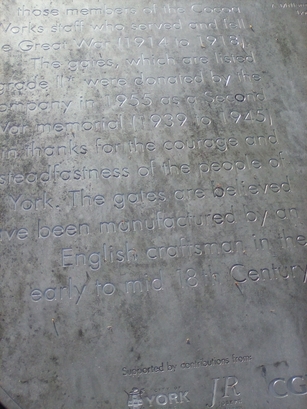 those members of the Cocoa
Works staff who served and fell
e Great War (1914 to 1918).
The gates, which are listed
grade II*, were donated by the
ompany in 1955 as a Second
War memorial (1939 to 1945)
in thanks for the courage and
steadfastness of the people of
York. The gates are believed
ave been manufactured by an
English craftsman in the
early to mid 18th Century
Supported by contributions from:
YORK JR